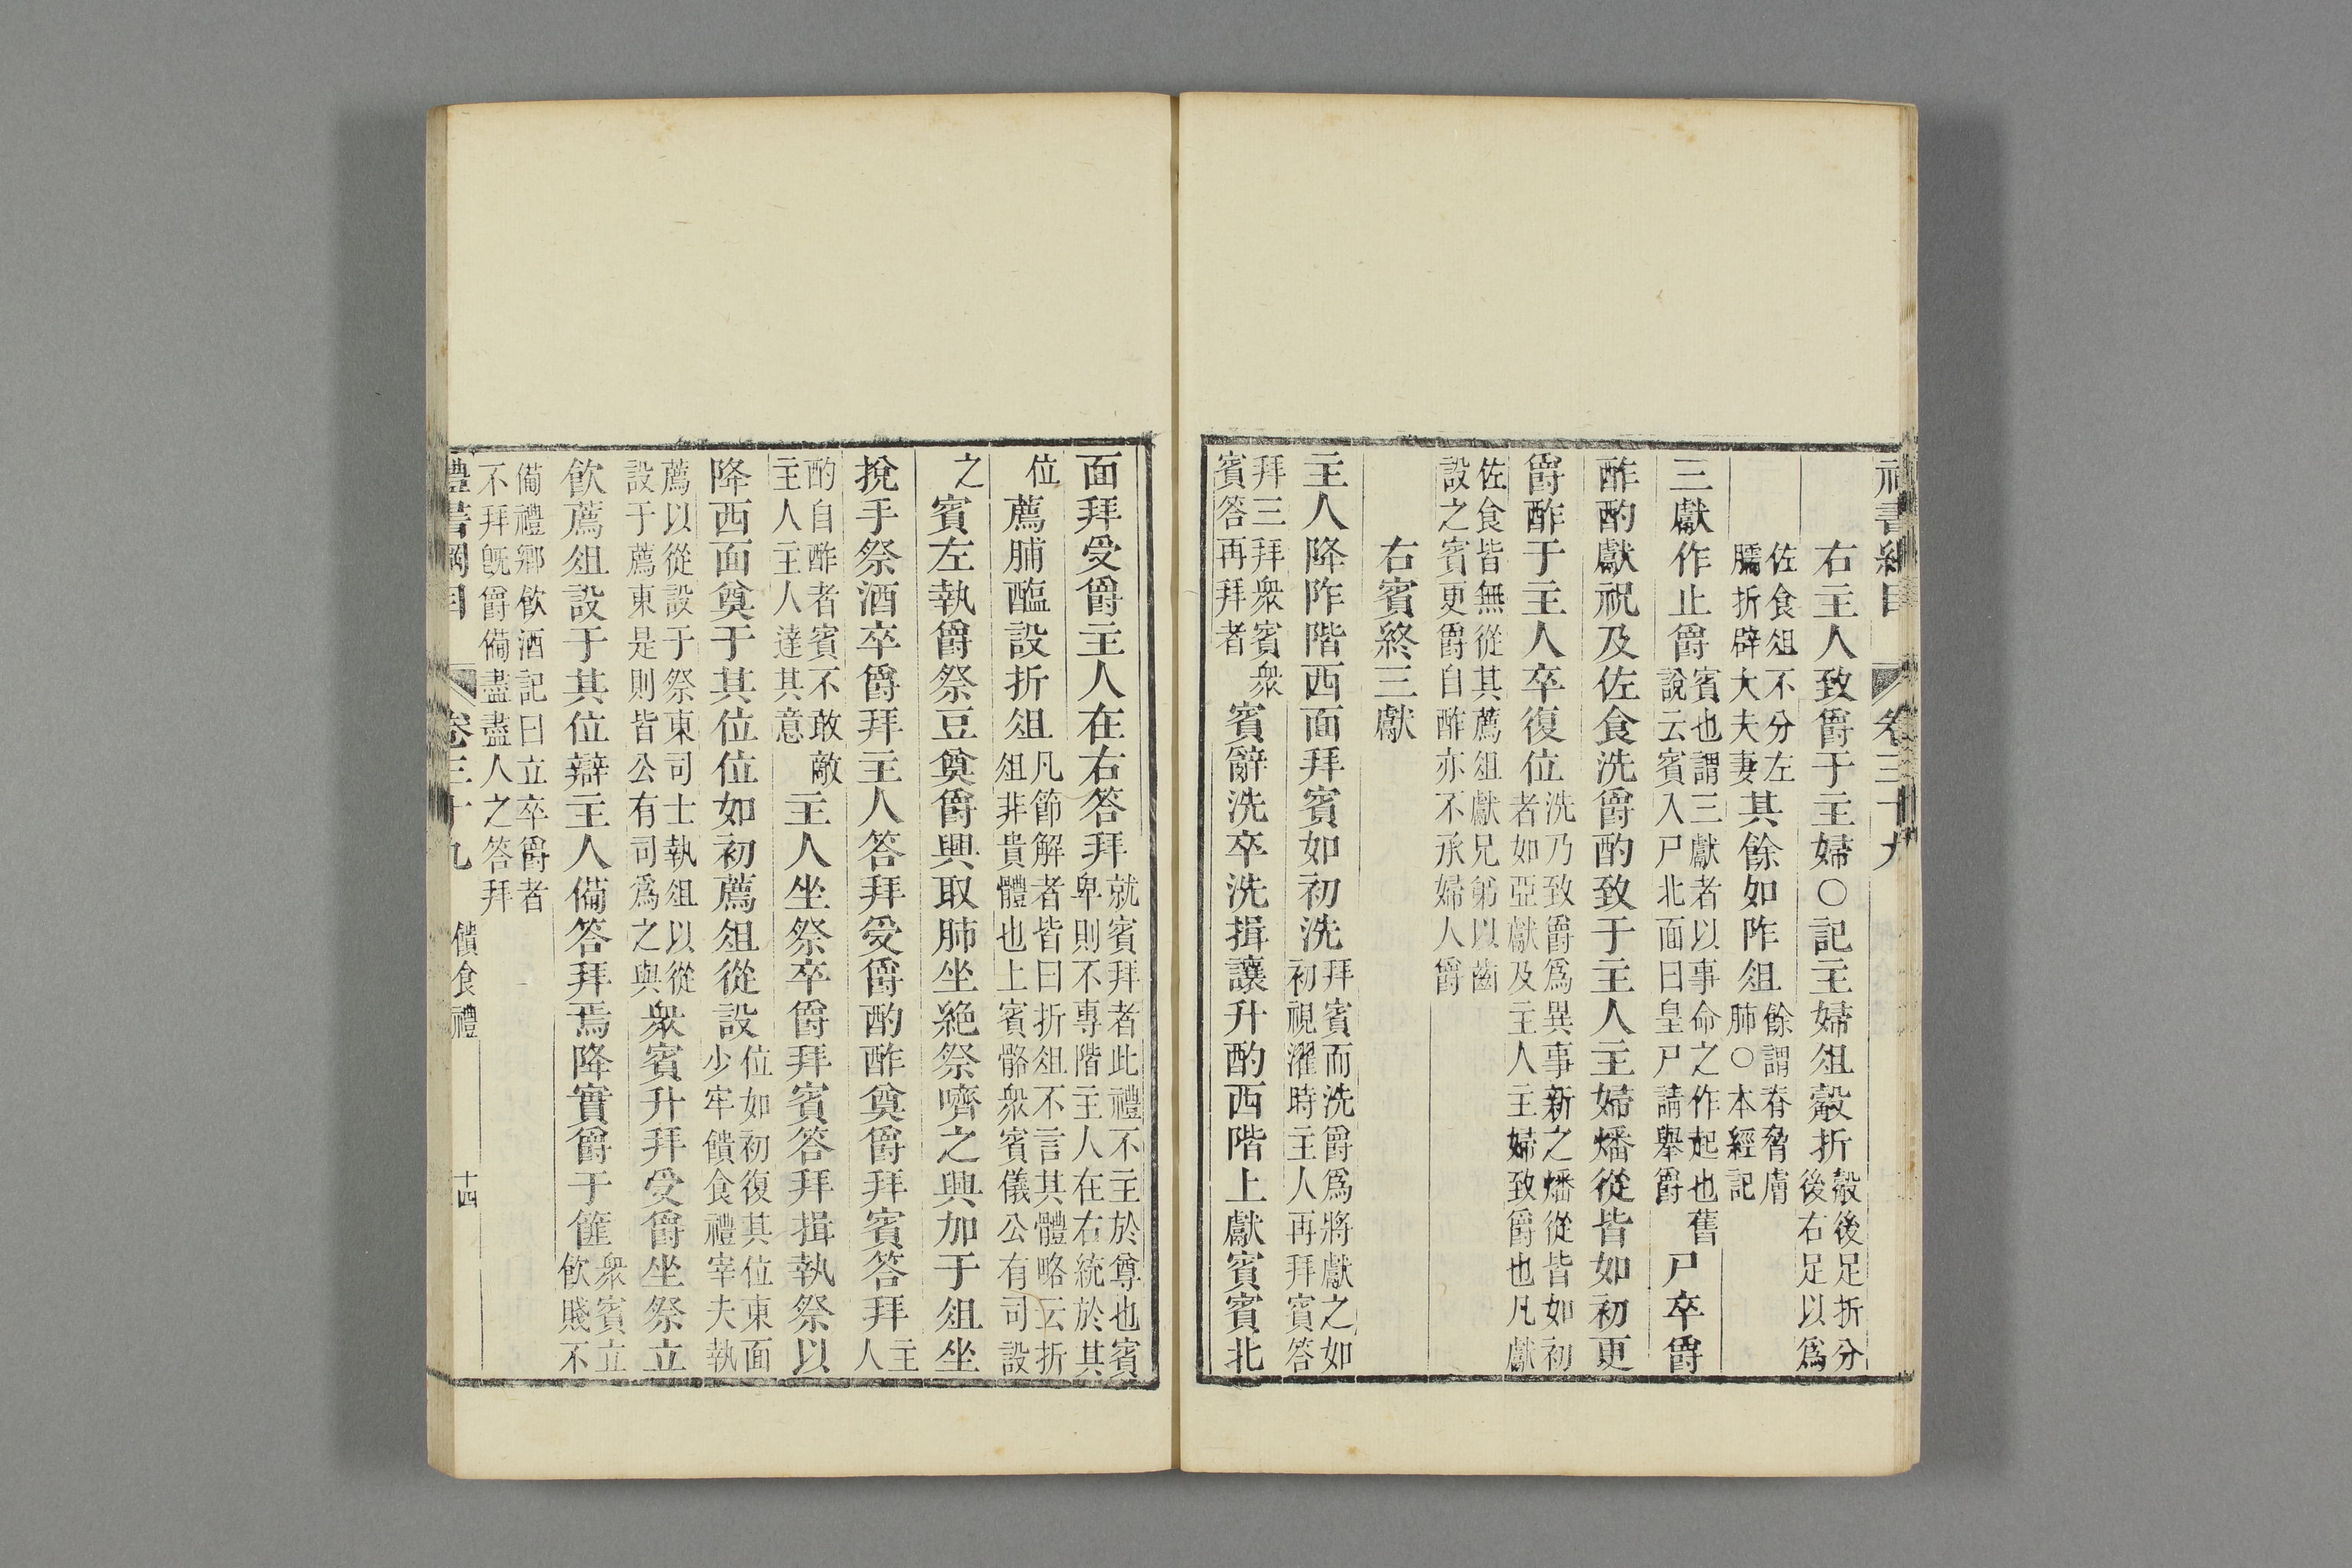 禮書綱目 卷三十九
右主人致爵于主婦○記主婦俎觳折
觳後足折分
後右足以爲
佐食俎不分左
臑折辟大夫妻
其餘如阼俎
餘謂脊脅膚
肺○本經記
三獻作止爵
賓也謂三獻者以事命之作起也舊
說云賓入尸北面曰皇尸請舉爵
尸卒爵
酢酌獻祝及佐食洗爵酌致于主人主婦燔從皆如初更
爵酢于主人卒復位
洗乃致爵爲異事新之燔從皆如初
者如亞獻及主人主婦致爵也凡獻
佐食皆無從其薦俎獻兄弟以齒
設之賓更爵自酢亦不承婦人爵
右賓終三獻
主人降阼階西面拜賓如初洗
拜賓而洗爵爲將獻之如
初視濯時主人再拜賓答
拜三拜衆賓衆
賓答再拜者
賓辭洗卒洗揖讓升酌西階上獻賓賓北
面拜受爵主人在右答拜
就賓拜者此禮不主於尊也賓
卑則不專階主人在右統於其
位
薦脯醢設折俎
凡節解者皆曰折俎不言其體略云折
俎非貴體也上賓骼衆賓儀公有司設
之
賓左執爵祭豆奠爵興取肺坐絶祭嚌之興加于俎坐
挩手祭酒卒爵拜主人答拜受爵酌酢奠爵拜賓答拜
主
人
酌自酢者賓不敢敵
主人主人達其意
主人坐祭卒爵拜賓答拜揖執祭以
降西面奠于其位位如初薦俎從設
位如初復其位東面
少牢饋食禮宰夫執
薦以從設于祭東司士執俎以從
設于薦東是則皆公有司爲之與
衆賓升拜受爵坐祭立
飲薦俎設于其位辯主人備答拜焉降實爵于篚
衆賓立
飲賤不
備禮鄉飲酒記曰立卒爵者
不拜旣爵備盡盡人之答拜
禮書綱目 卷三十九 饋食禮 十四